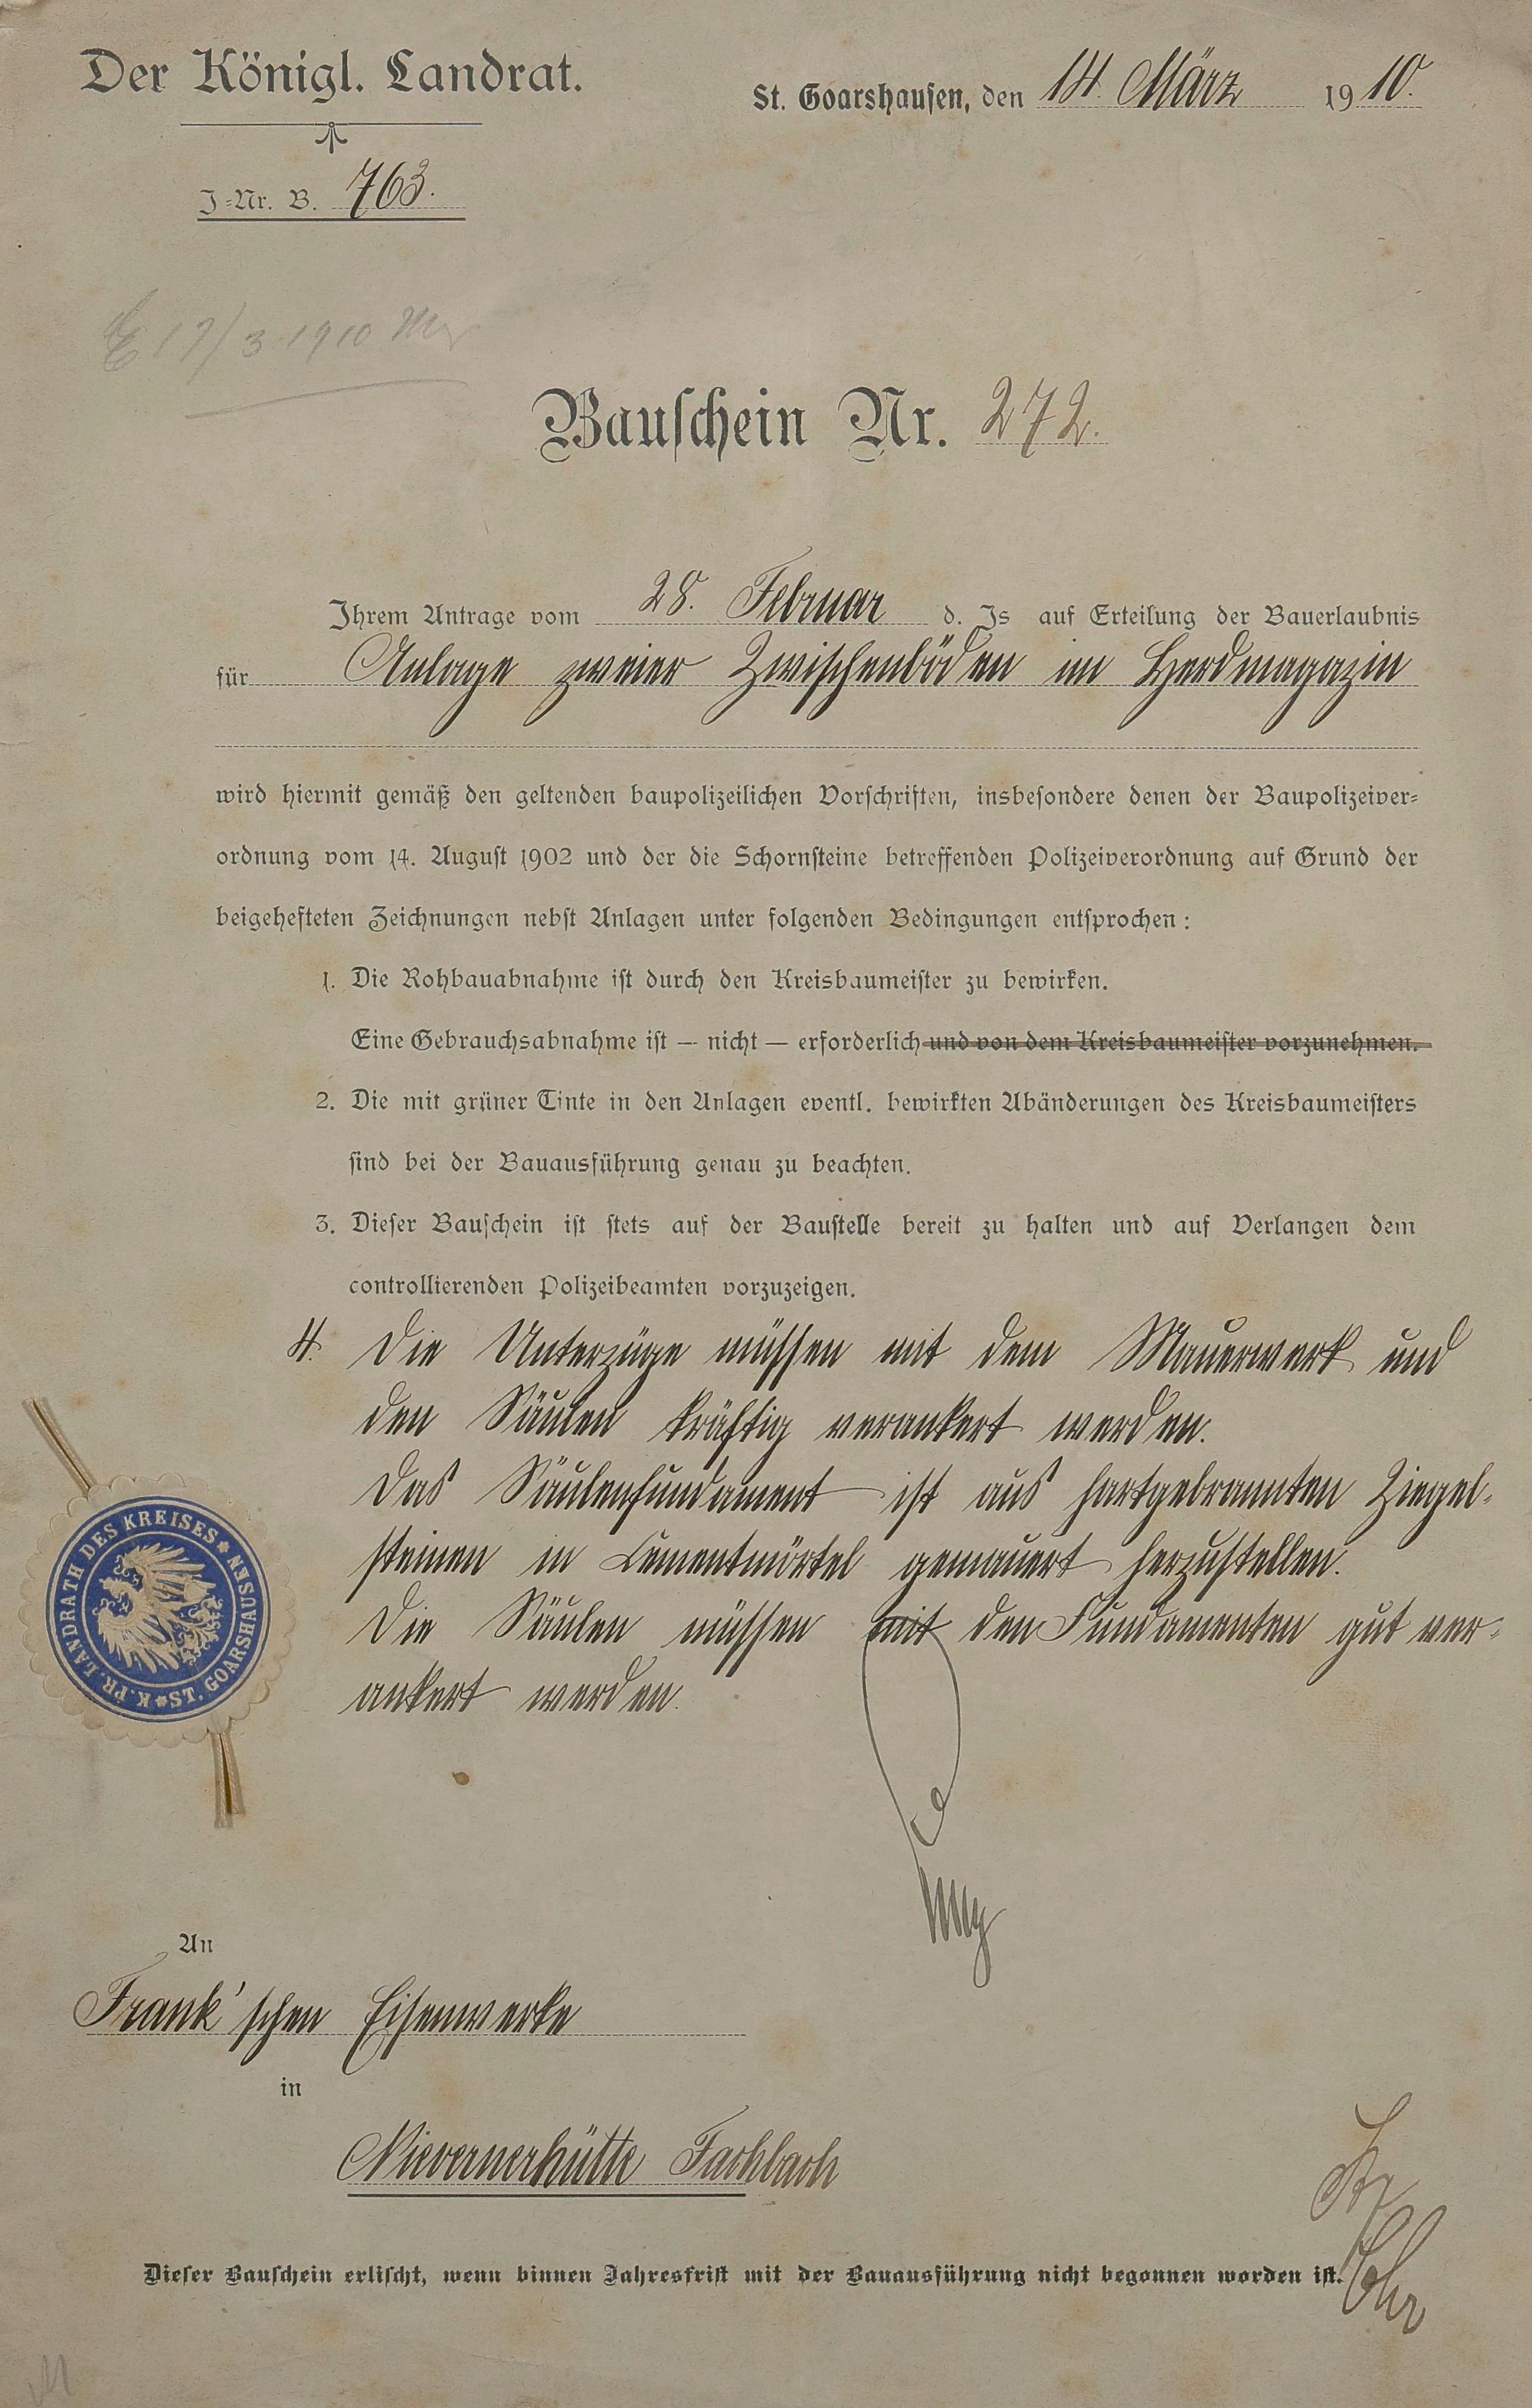 Der Königl. Landrat.
St. Goarshausen, den 14. März 1910.
J=Nr. B. 763.
E 17/3 1910
Bauschein Nr. 272.
Ihrem Antrage vom 28. Februar d. Js auf Erteilung der Bauerlaubnis
für Anlage zweier Zwischenböden im Herdmagazin
wird hiermit gemäß den geltenden baupolizeilichen Vorschriften, insbesondere denen der Baupolizeiver=
ordnung vom 14. August 1902 und der die Schornsteine betreffenden Polizeiverordnung auf Grund der
beigehefteten Zeichnungen nebst Anlagen unter folgenden Bedingungen entsprochen:
1. Die Rohbauabnahme ist durch den Kreisbaumeister zu bewirken.
Eine Gebrauchsabnahme ist — nicht — erforderlich und von dem Kreisbaumeister vorzunehmen.
2. Die mit grüner Tinte in den Anlagen eventl. bewirkten Abänderungen des Kreisbaumeisters
sind bei der Bauausführung genau zu beachten.
3. Dieser Bauschein ist stets auf der Baustelle bereit zu halten und auf Verlangen dem
controllierenden Polizeibeamten vorzuzeigen.
4. Die Unterzüge müssen mit dem Mauerwerk und
den Säulen kräftig verankert werden.
Das Säulenfundament ist aus hartgebrannten Ziegel-
steinen in Cementmörtel gemauert herzustellen.
Die Säulen müssen mit den Fundamenten gut ver=
ankert werden.
K. PR. LANDRATH DES KREISES ST. GOARSHAUSEN
An
Frank'schen Eisenwerke
in
Nievernerhütte Fachbach
Dieser Bauschein erlischt, wenn binnen Jahresfrist mit der Bauausführung nicht begonnen worden ist.